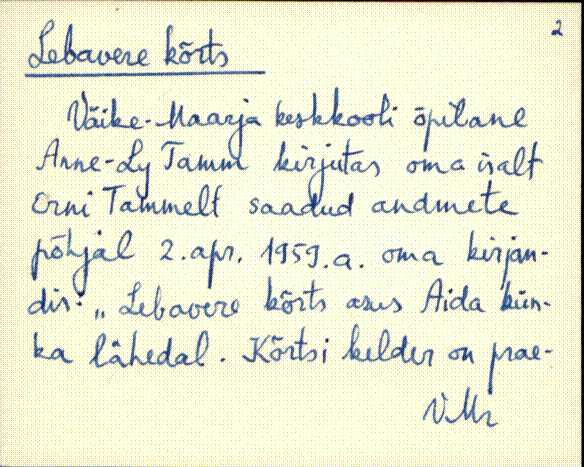 2
Lebavere kõrts
Väike-Maarja keskkooli õpilane
Anne-Ly Tamm kirjutas oma isalt
Erni Tammelt saadud andmete
põhjal 2. apr. 1959. a. oma kirjan-
dis: „Lebavere kõrts asus Aida kün-
ka lähedal. Kõrtsi kelder on prae-
VMr